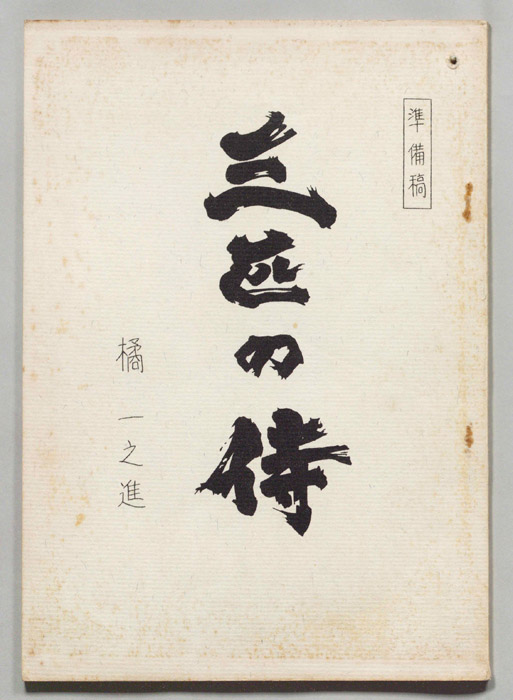 準備稿
三匹の侍
橘一之進